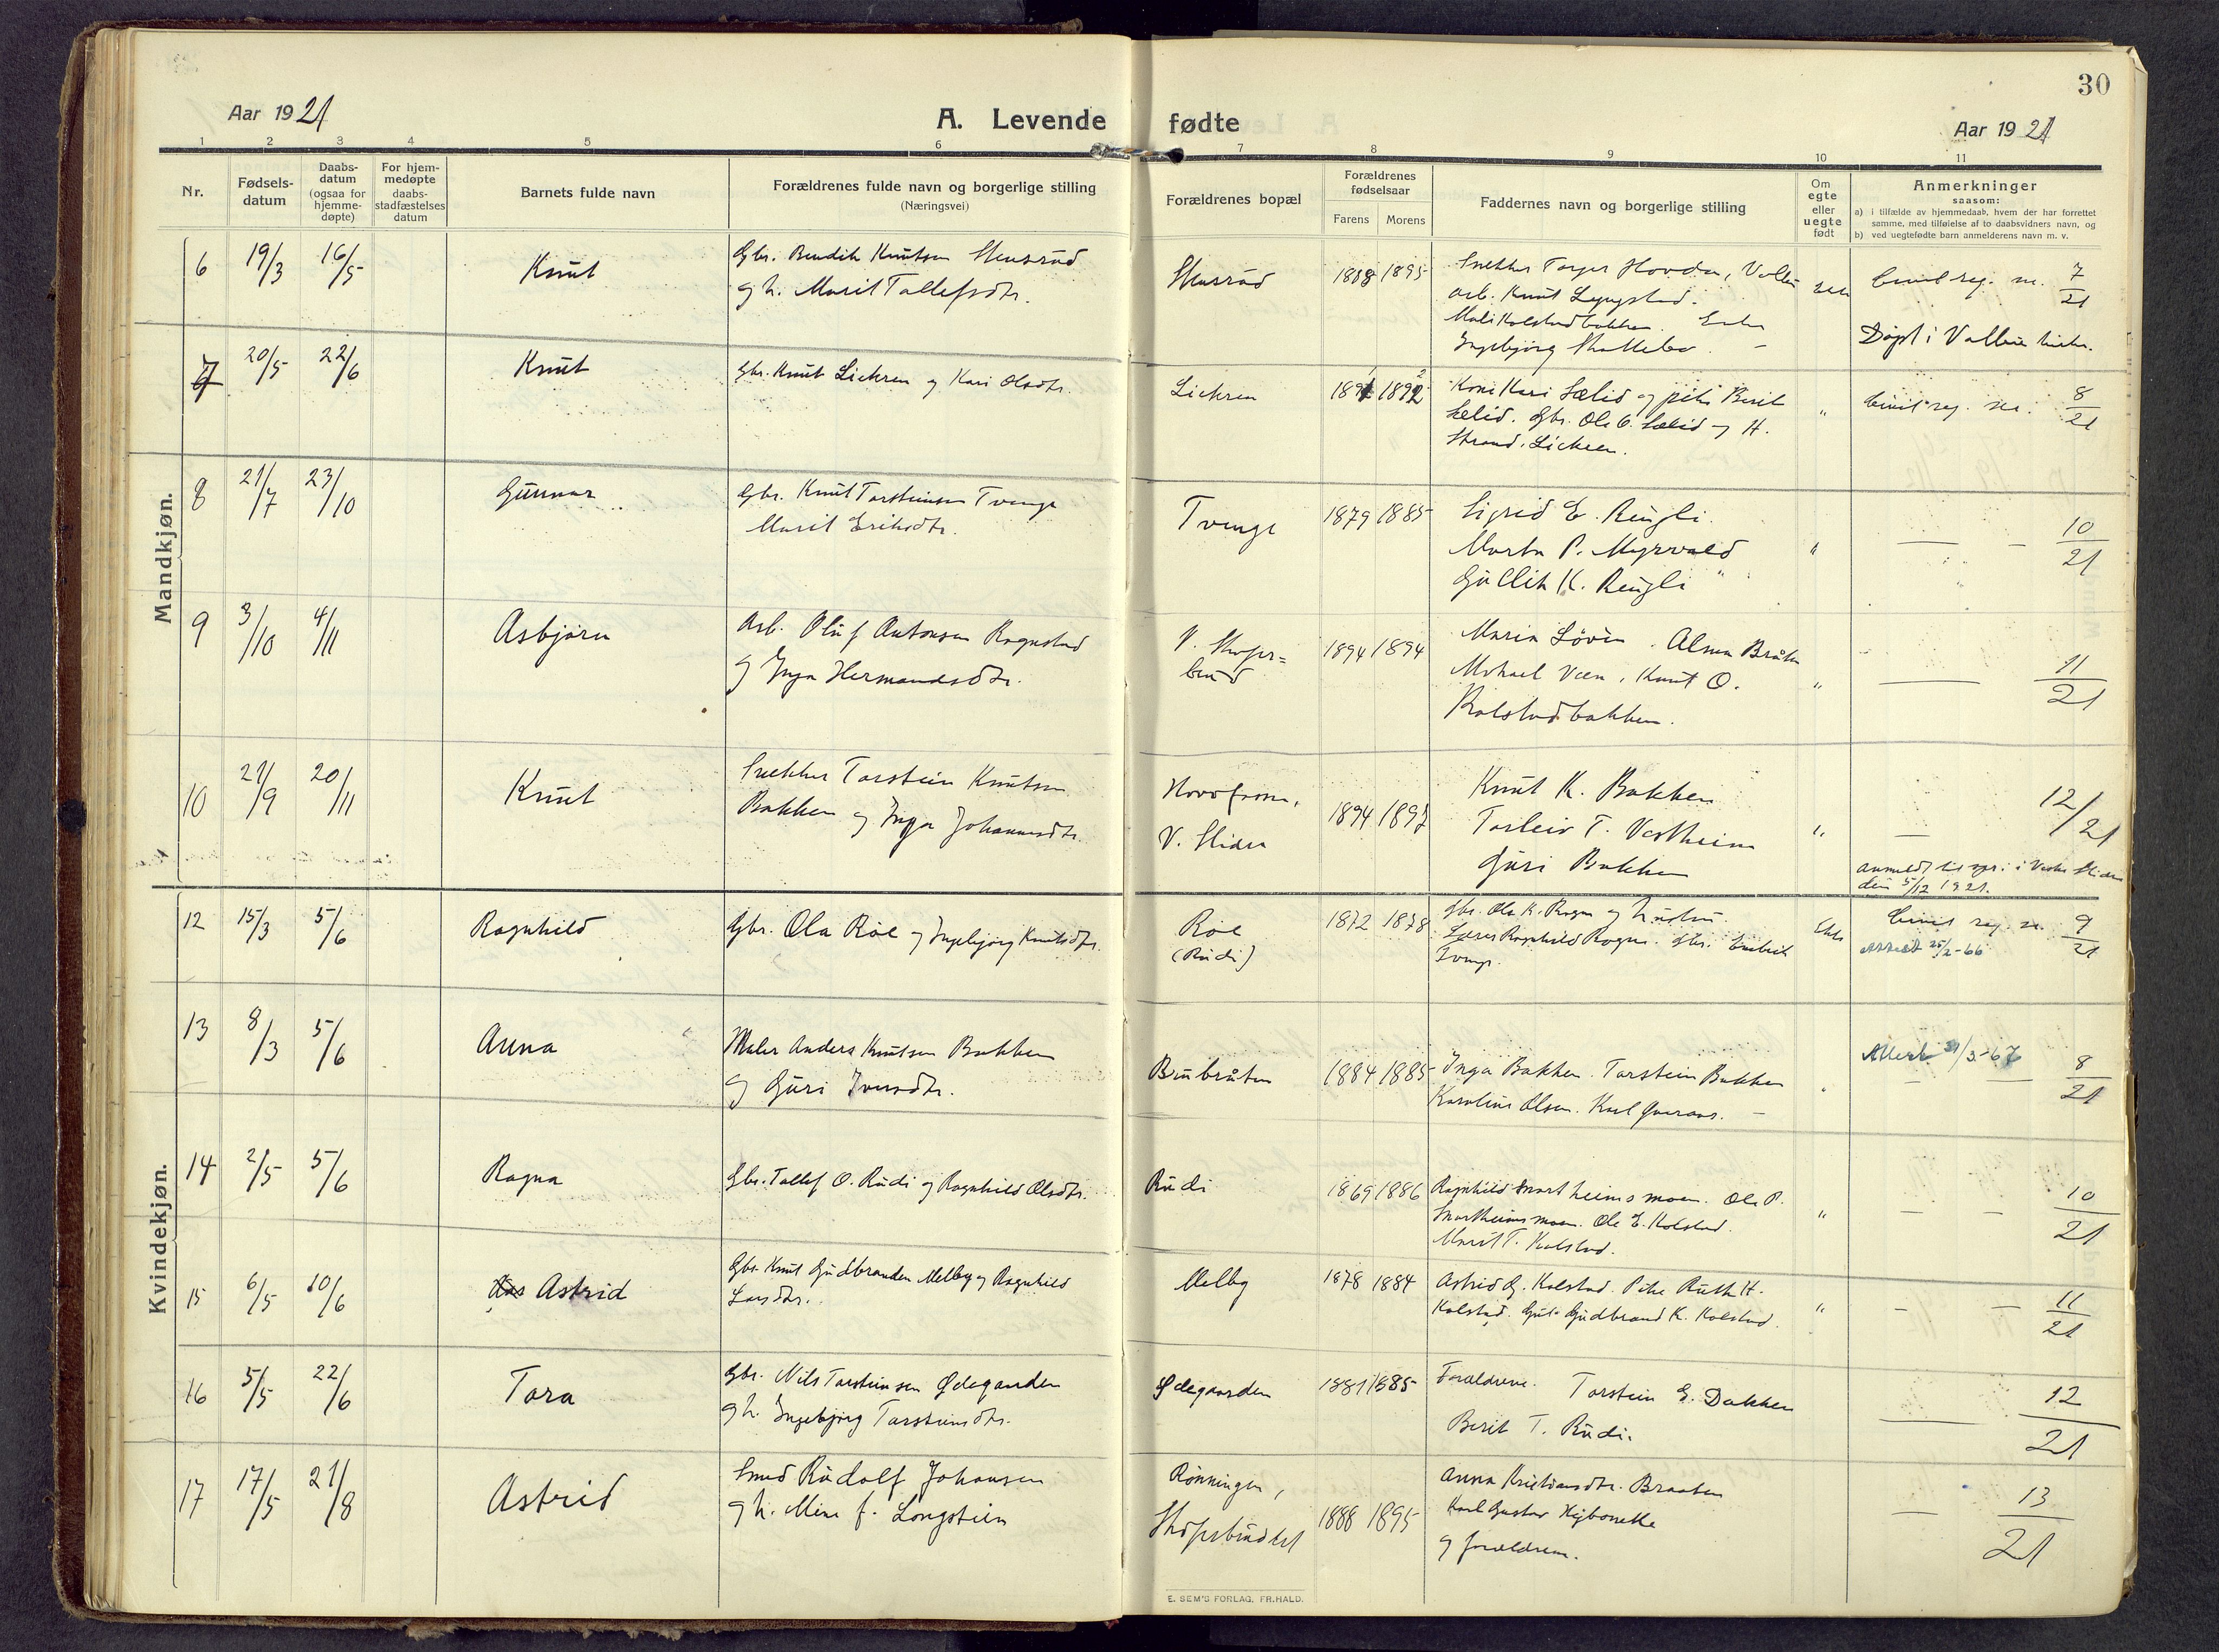 30
Aar 1921
A. Levende fødte
Aar 1921
1 2 3 4 5 6 7 8 9 10 11
Nr.
Fødsels-
datum
Daabs-
datum
(ogsaa for
hjemme-
døpte)
For hjem-
medøpte
daabs-
stadfæstelses
datum
Barnets fulde navn
Forældrenes fulde navn og borgerlige stilling
(Næringsvei)
Forældrenes bopæl
Forældrenes
fødselsaar
Farens Morens
Faddernes navn og borgerlige stilling
Om
egte
eller
uegte
født
Anmerkninger
saasom:
a) i tilfælde av hjemmedaab, hvem der har forrettet
samme, med tilføielse af to daabsvidners navn, og
b) ved uegtefødte barn anmelderens navn m. v.
Mandkjøn.
6 19/3 16/5 Knut
Gbr. Bendik Knutsen Stensrud
og h. Marit Tollefsdtr.
Stensrud 1895
Snekker Torger Hovda,
arb. Knut
Ingebjørg
Civil reg. nr. 7/21
Døpt i Volbu kirke.
7 20/5 22/6 Knut
Gbr. Knut og Kari Olsdtr.
1892
Kone Kari Sælid og pike Berit
Sælid. Gbr. Ole O. Sælid og H.
Strand.
" Civil reg. nr. 8/21
8 21/7 23/10 Gunnar
Gbr. Knut Torsteinsen Tvenge
Marit Eriksdtr.
Tvenge 1879 1885
Sigrid E. Rengli.
Marta P. Myrvold
Gullik K. Rengli "
" — - 10/21
9 3/10 4/11 Asbjørn
Arb. Oluf Antonsen Rognstad
og Inga Hermandsdtr.
1894 1894
Maria Løvin. Alma Bråten
Mikael Veen, Knut O.
Kolstadbakken.
" — 11/21
10 21/9 20/11 Knut
Snekker Torstein Knutsen
Bakken og Inga Johannesdtr.
V. Slidre
1894 1897
Knut K. Bakken
Torleiv T. Vestheim
Guri Bakken
" — 12/21
anmeldt til i Vestre Slidre
den 5/12 1921.
Kvindekjøn.
12 15/3 5/6 Ragnhild
Gbr. Ola Röe og Ingebjørg Knutsdtr.
Röe
(Rudi)
1872 1878
Gbr. Ola K. Rogne og hustru.
Ragnhild Rogne. Gbr.
Civil reg. nr. 9/21
Attest 25/2-66
13 8/3 5/6 Anna
Maler Anders Knutsen Bakken
og Guri Iversdtr.
Brubråten 1884 1885
Inga Bakken. Torstein Bakken
Karoline Olsen. Karl
Attest 31/3-67
— — 8/21
14 2/5 5/6 Ragna
Gbr. Tollef O. Rudi og Ragnhild Olsdtr.
Rudi 1869 1886
Ragnhild Snortheimsmoen. Ole P.
Snortheimsmoen. Ole E. Kolstad.
Marit T. Kolstad.
" — - 10/21
15 6/5 10/6 Astrid
Gbr. Knut Gudbranden Melby og Ragnhild
Larsdtr.
Melby 1878 1884
Astrid G. Kolstad. Pike Ruth H.
Kolstad. Gut Gudbrand K. Kolstad.
" - — 11/21
16 5/5 22/6 Tora
Gbr. Nils Torsteinsen Ødegaarden
og h. Ingebjørg Torsteinsdtr.
Ødegaarden 1881 1885
Forældrene. Torstein E. Dokken
Berit T. Rudi.
— 12/21
17 17/5 21/8 Astrid
Smed Rudolf Johansen
og h. Mina f. Longstien
Rønningen,
1888 1895
Anna Kristiansdtr. Braaten
Karl Gustav
og forældrene.
— 13/21
E. SEM'S FORLAG, FR.HALD.